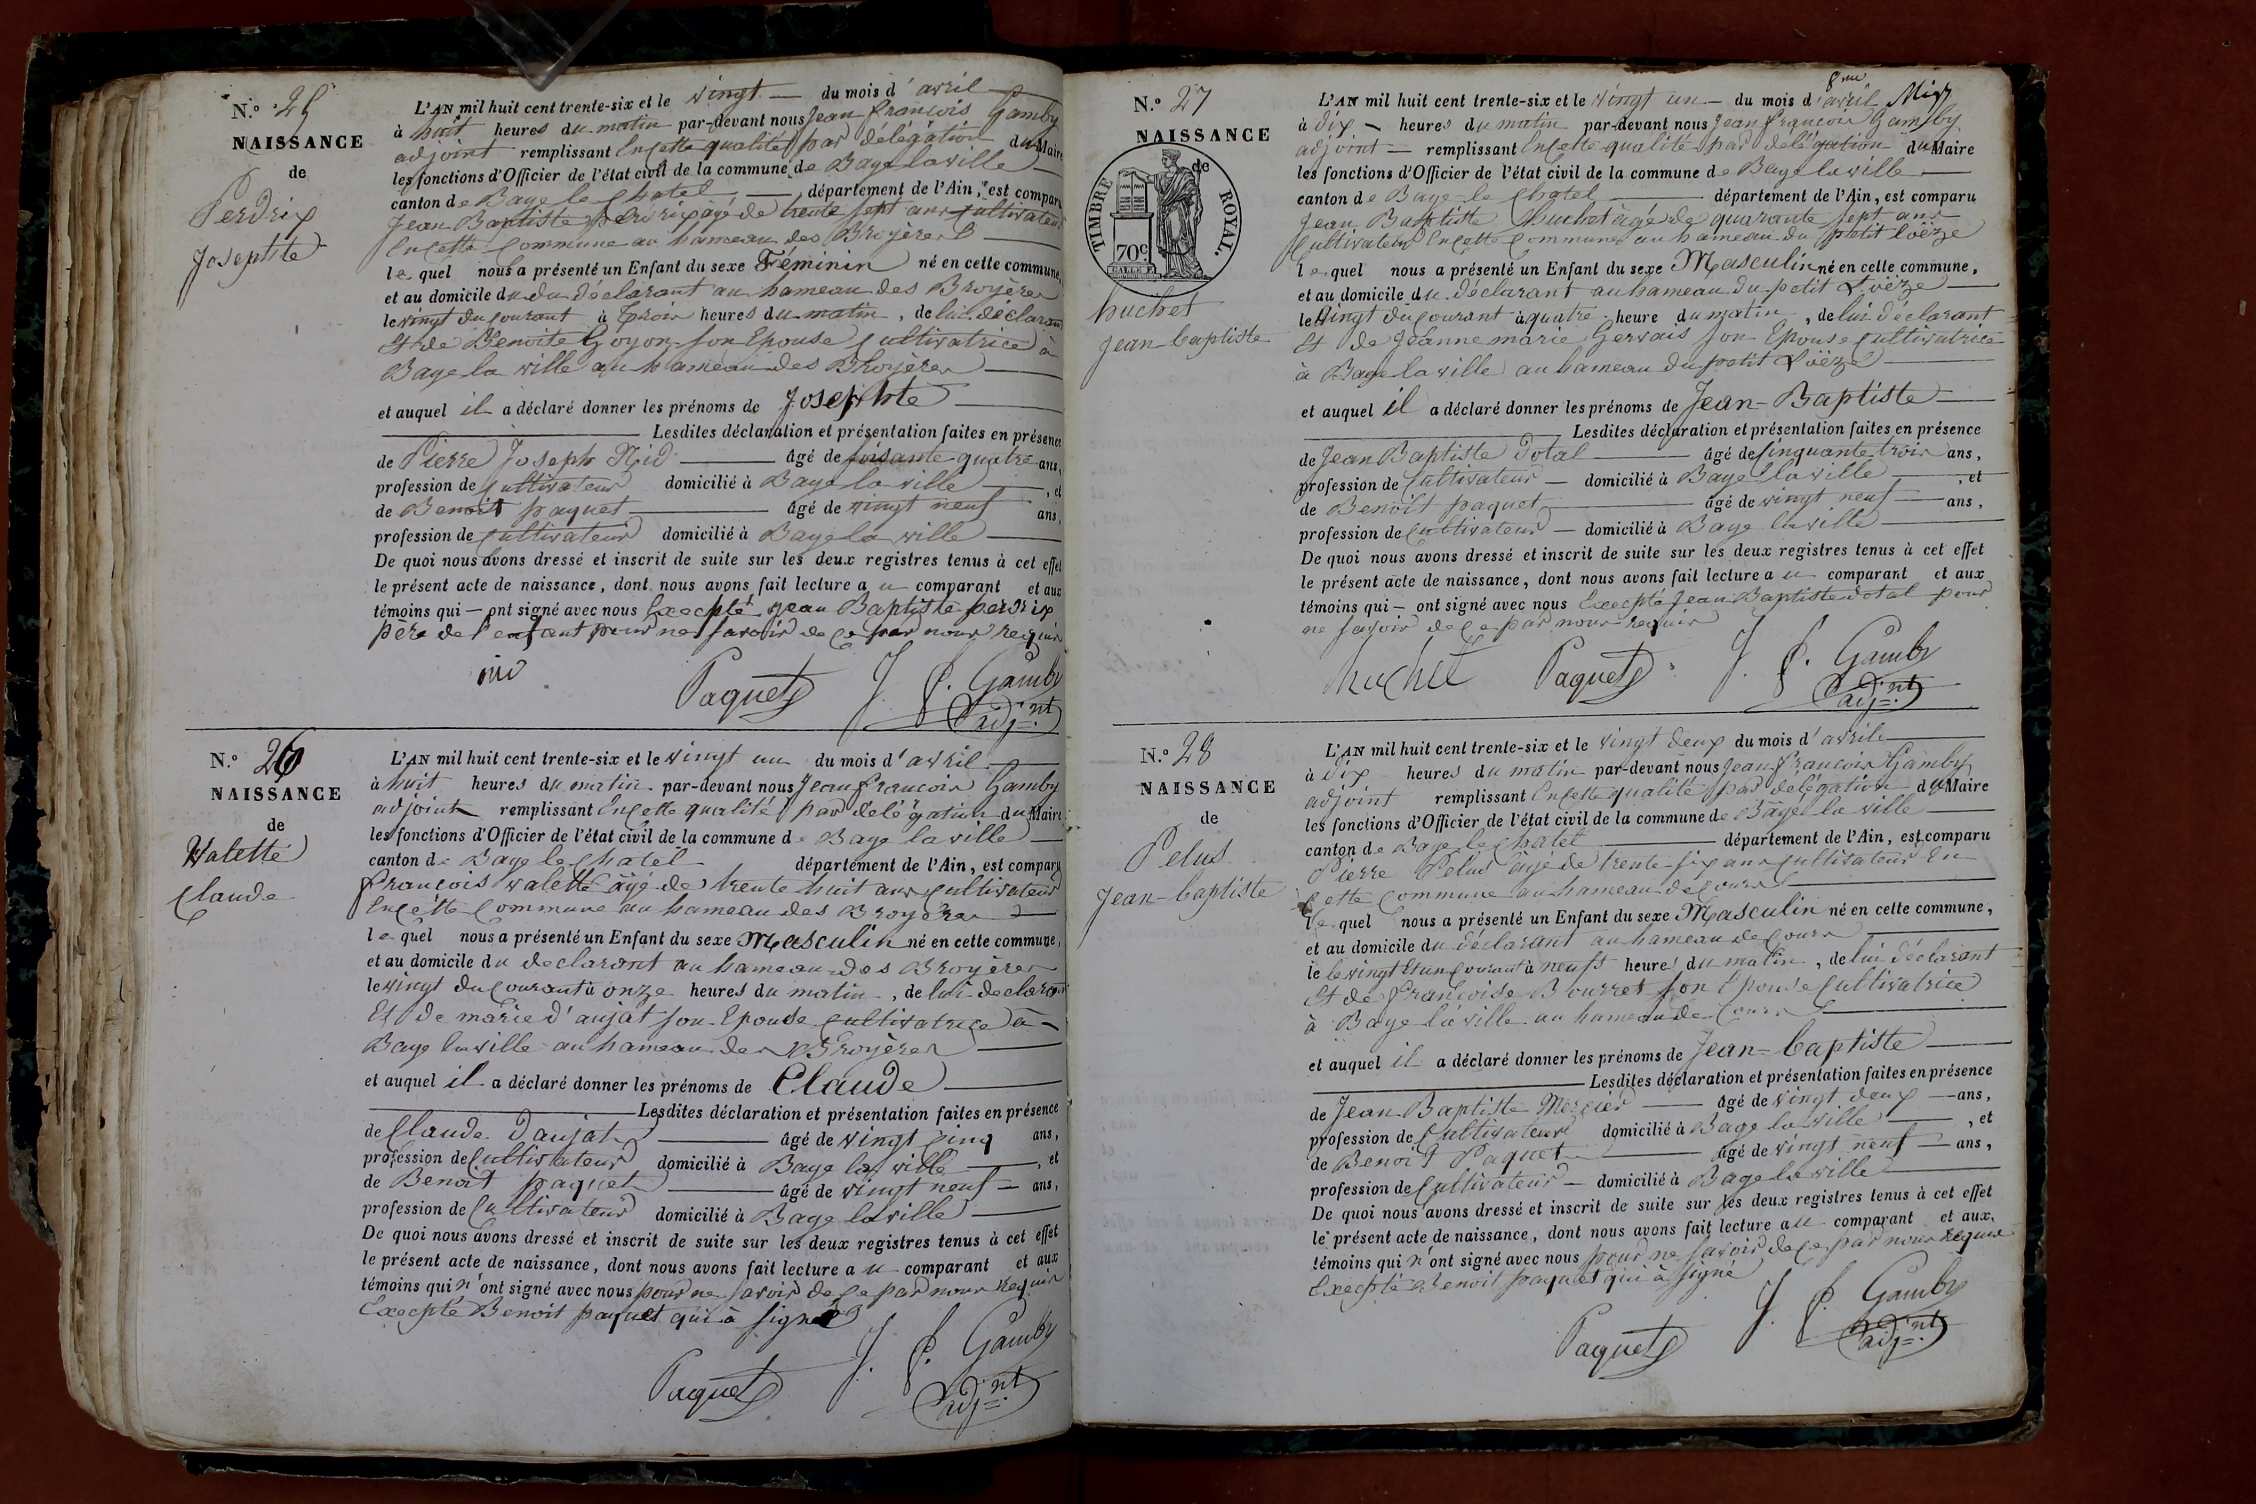 N.º 25
NAISSANCE
de
Perdrix
Josephte
L'AN mil huit cent trente-six et le vingt du mois d'avril
à huit heures du matin par-devant nous Jean françois Gamby
adjoint remplissant En cette qualité par délégation du Maire
les fonctions d'Officier de l'état civil de la commune de Bagé la ville
canton de Bage le chatel, département de l'Ain, est comparu
Jean Baptiste Perdrix agé de trente sept ans cultivateur
En cette commune au hameau des Broyères
lequel nous a présenté un Enfant du sexe Féminin né en cette commune,
et au domicile du du déclarant au hameau des Broyères
le vingt du courant à trois heures du matin, de lui déclarant
Et de Benoite Goyon son Epouse cultivatrice à
Bage la ville au hameau des Broyères
et auquel il a déclaré donner les prénoms de Josephte
Lesdites déclaration et présentation faites en présence
de Pierre Joseph Nid âgé de soisante quatre ans,
profession de cultivateur domicilié à Bage la ville, et
de Benoit paquet âgé de vingt neuf ans,
profession de cultivateur domicilié à Bage la ville
De quoi nous avons dressé et inscrit de suite sur les deux registres tenus à cet effet
le présent acte de naissance, dont nous avons fait lecture au comparant et aux
témoins qui ont signé avec nous Excepté Jean Baptiste perdrix
père de l'enfant pour ne savoir de ce par nous requis
nid Paquet J. f. Gamby
adj.nt
N.º 26
NAISSANCE
de
Valette
Claude
L'AN mil huit cent trente-six et le vingt un du mois d'avril
à huit heures du matin par-devant nous Jean françois Gamby
adjoint remplissant En cette qualité par délégation du Maire
les fonctions d'Officier de l'état civil de la commune de Bage la ville
canton de Bage le chatel département de l'Ain, est comparu
françois valette âgé de trente huit ans cultivateur
En cette commune au hameau des Broyères
lequel nous a présenté un Enfant du sexe Masculin né en cette commune,
et au domicile du declarant au hameau des Broyères
le vingt du courant à onze heures du matin, de lui declarant
Et de marie d'aujat son Epouse cultivatrice à
Bage la ville au hameau des Broyères
et auquel il a déclaré donner les prénoms de Claude
Lesdites déclaration et présentation faites en présence
de Claude Daujat âgé de vingt cinq ans,
profession de Cultivateur domicilié à Bage la ville, et
de Benoit paquet âgé de vingt neuf ans,
profession de Cultivateur domicilié à Bage la ville
De quoi nous avons dressé et inscrit de suite sur les deux registres tenus à cet effet
le présent acte de naissance, dont nous avons fait lecture au comparant et aux
témoins qui n'ont signé avec nous pour ne savoir de ce par nous requis
Excepté Benoit paquet qui à signé
Paquet J. f. Gamby
adj.nt
N.º 27
NAISSANCE
de
TIMBRE ROYAL.
70c
huchet
Jean-baptiste
L'AN mil huit cent trente-six et le vingt un du mois d'avril
à dix heures du matin par-devant nous Jean françois Gamby
adjoint remplissant En cette qualité par délégation du Maire
les fonctions d'Officier de l'état civil de la commune de Bage la ville
canton de Bage le chatel département de l'Ain, est comparu
Jean Baptiste huchet âgé de quarante sept ans
Cultivateur En cette commune au hameau du petit Loëze
lequel nous a présenté un Enfant du sexe Masculin né en cette commune,
et au domicile du déclarant au hameau du petit Loëze
le vingt du courant à quatre heure du matin, de lui déclarant
Et de Jeanne marie Gervais son Epouse cultivatrice
à Bage la ville au hameau du petit Loëze
et auquel il a déclaré donner les prénoms de Jean-Baptiste
Lesdites déclaration et présentation faites en présence
de Jean Baptiste Dotal âgé de Cinquante trois ans,
profession de Cultivateur domicilié à Bage la ville, et
de Benoit paquet âgé de vingt neuf ans,
profession de cultivateur domicilié à Bage la ville
De quoi nous avons dressé et inscrit de suite sur les deux registres tenus à cet effet
le présent acte de naissance, dont nous avons fait lecture au comparant et aux
témoins qui ont signé avec nous Excepté Jean Baptiste Dotal pour
ne savoir de ce par nous requis
huchet Paquet J. f. Gamby
adj.nt
N.º 28
NAISSANCE
de
Pelus
Jean-baptiste
L'AN mil huit cent trente-six et le vingt deux du mois d'avril
à dix heures du matin par-devant nous Jean françois Gamby
adjoint remplissant En cette qualité par délégation du Maire
les fonctions d'Officier de l'état civil de la commune de Bagé la ville
canton de Bage le chatel département de l'Ain, est comparu
Pierre Pelus âgé de trente six ans cultivateur En
cette commune au hameau de cours
lequel nous a présenté un Enfant du sexe Masculin né en cette commune,
et au domicile du déclarant au hameau de cours
le le vingt Et un courant à neuft heures du matin, de lui déclarant
Et de françoise Bourret son Epouse Cultivatrice
à Bage la ville au hameau de Cours
et auquel il a déclaré donner les prénoms de Jean-baptiste
Lesdites déclaration et présentation faites en présence
de Jean Baptiste Mercier âgé de vingt deux ans,
profession de Cultivateur domicilié à Bage la ville, et
de Benoit Paquet âgé de vingt neuf ans,
profession de Cultivateur domicilié à Bage la ville
De quoi nous avons dressé et inscrit de suite sur les deux registres tenus à cet effet
le présent acte de naissance, dont nous avons fait lecture au comparant et aux
témoins qui n'ont signé avec nous pour ne savoir de ce par nous requis
Excepté Benoit paquet qui à signé
Paquet J. f. Gamby
adj.nt